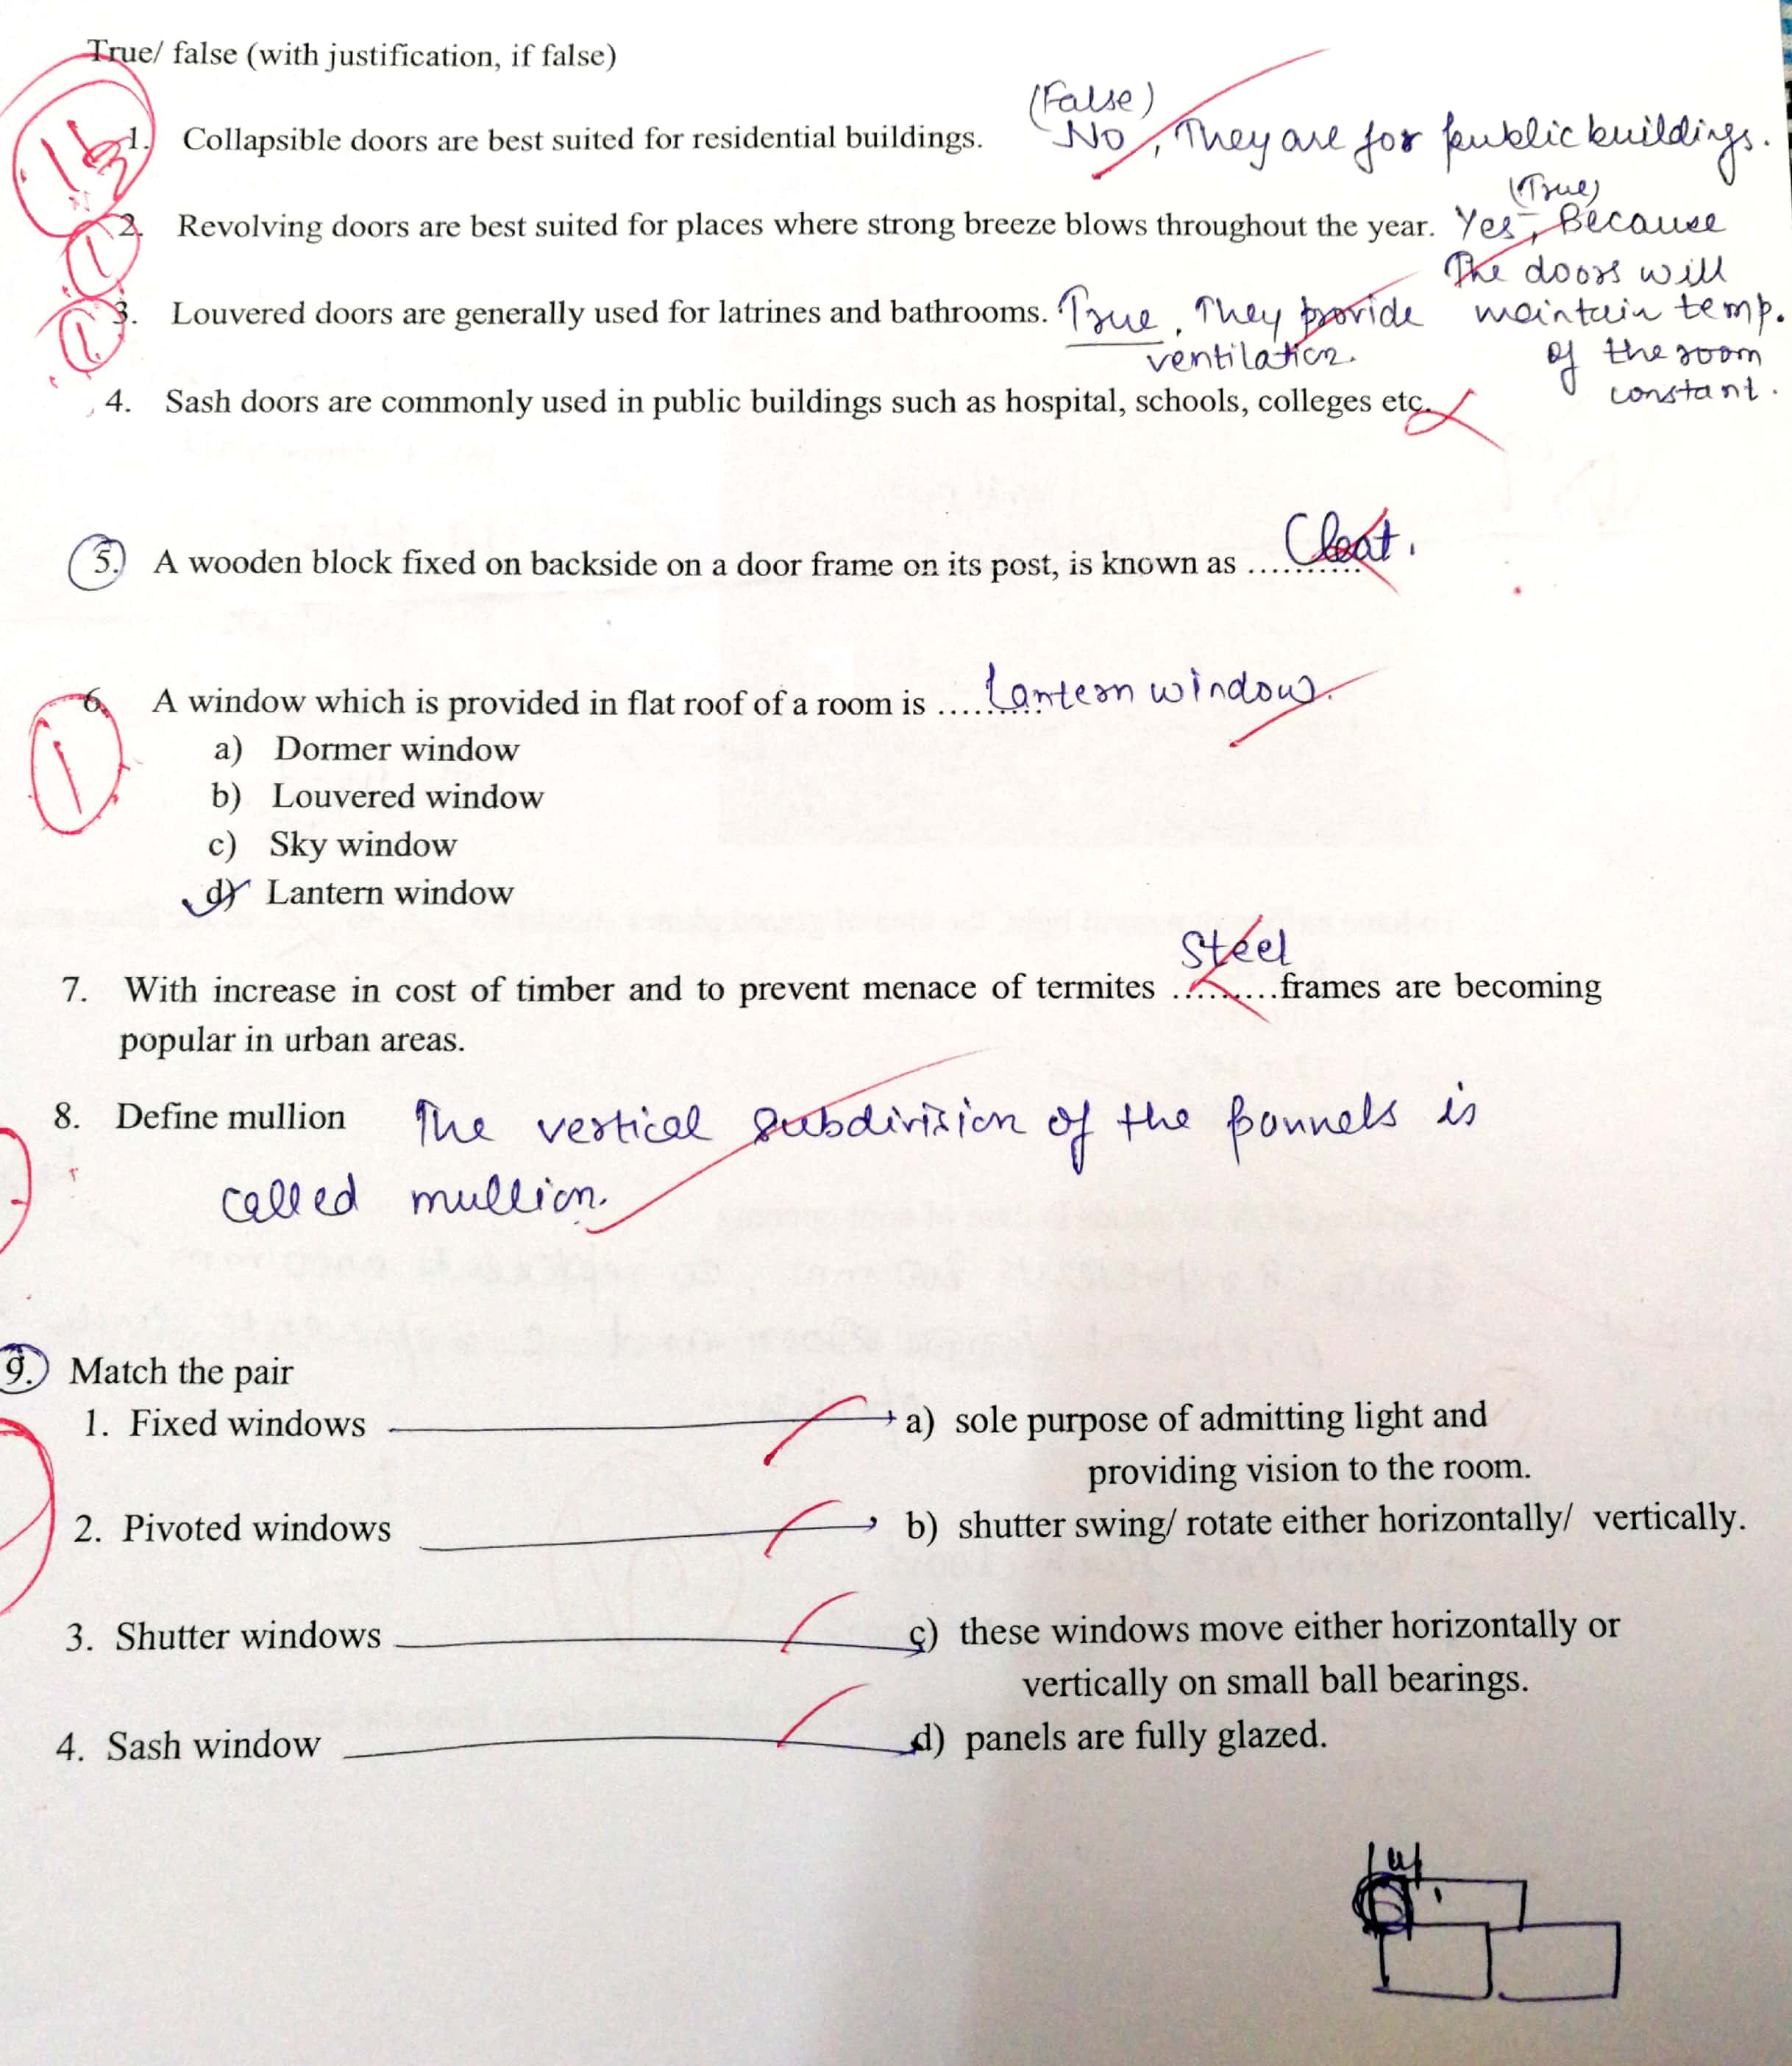 True/ false (with justification, if false)
(False)
1. Collapsible doors are best suited for residential buildings. No, They are for public buildings.
(True)
2. Revolving doors are best suited for places where strong breeze blows throughout the year. Yes, Because
The doors will
3. Louvered doors are generally used for latrines and bathrooms. True, They provide maintain temp.
ventilation. of the room
4. Sash doors are commonly used in public buildings such as hospital, schools, colleges etc. constant.
5. A wooden block fixed on backside on a door frame on its post, is known as ........... Cleat.
6. A window which is provided in flat roof of a room is ......... Lantern window.
1
1
1
a) Dormer window
b) Louvered window
c) Sky window
d) Lantern window
Steel
7. With increase in cost of timber and to prevent menace of termites .........frames are becoming
popular in urban areas.
8. Define mullion The vertical subdivision of the pannels is
called mullion.
9. Match the pair
1. Fixed windows a) sole purpose of admitting light and
providing vision to the room.
2. Pivoted windows b) shutter swing/ rotate either horizontally/ vertically.
3. Shutter windows c) these windows move either horizontally or
vertically on small ball bearings.
4. Sash window d) panels are fully glazed.